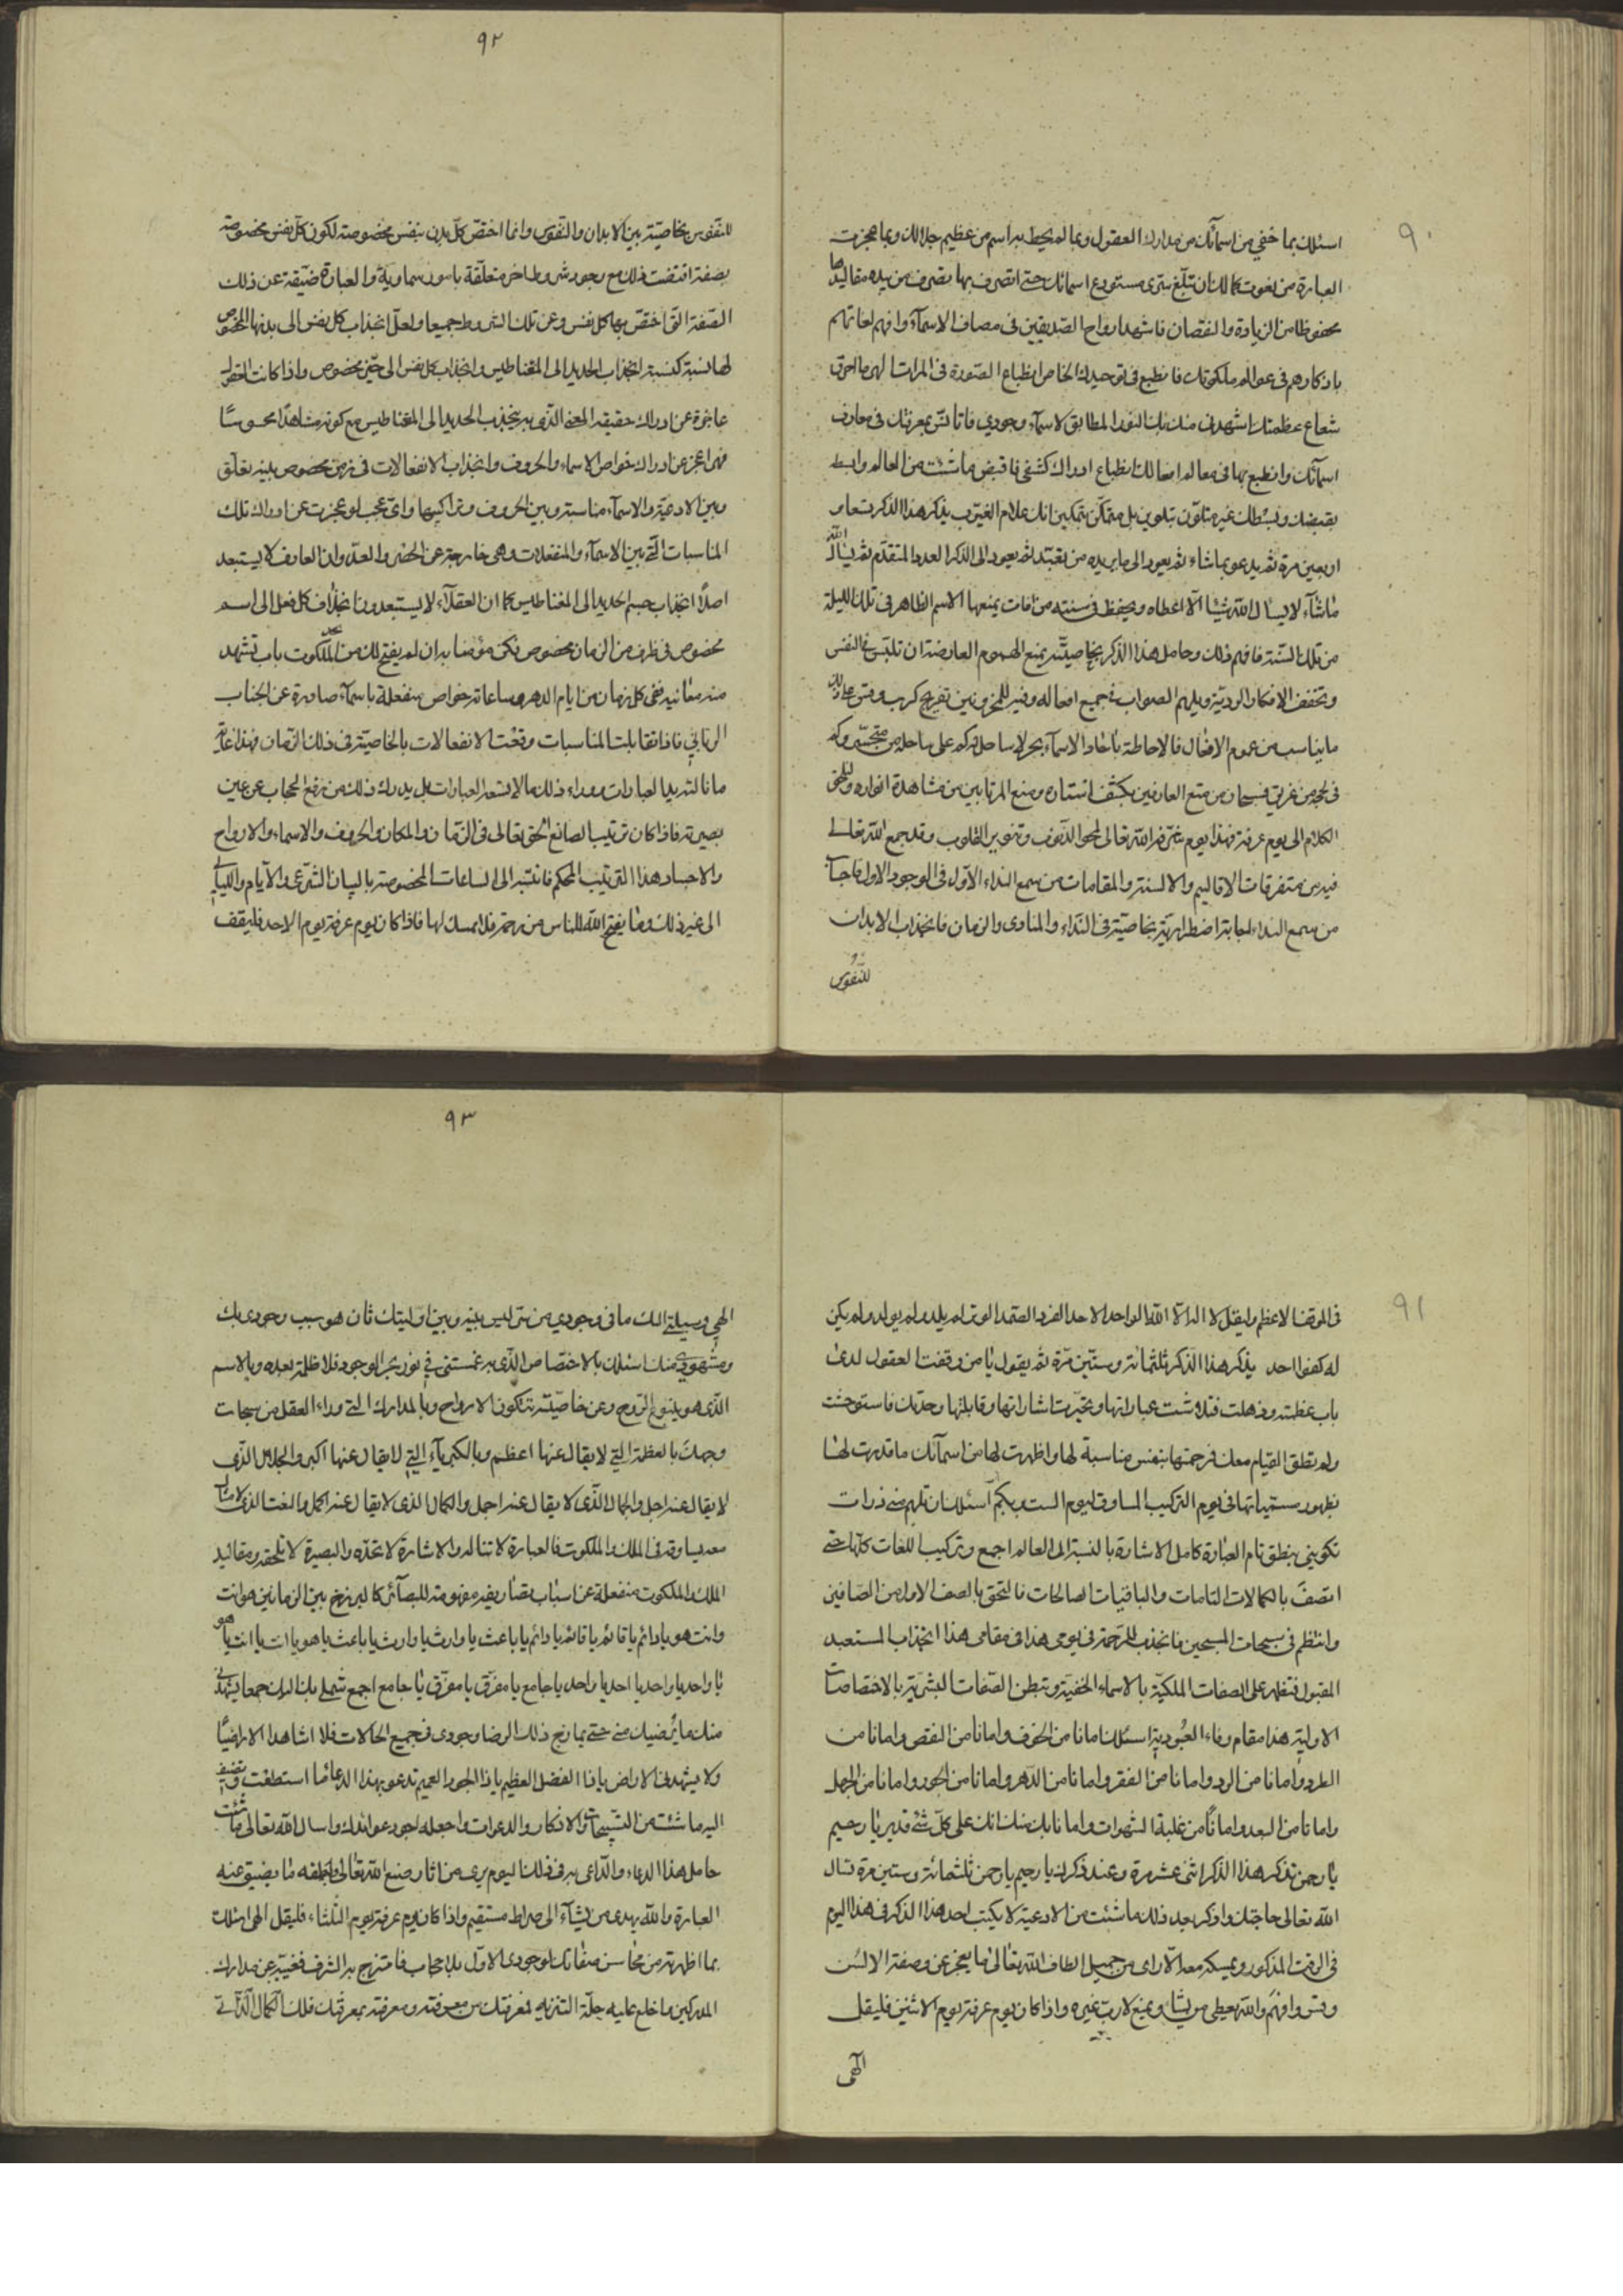 ٩٠
اسئلك بما خفي من اسمآئك من مدارك العقول وبما لم يحيط به اسم من عظيم جلالك وبما عجزت
العبارة من نعوت كمالك ان تبلّغ سرّى مستودع اسمائك حتى اتصرف بها تصرف من بيده مقاليدها
محفوظا من الزيادة والنقصان فاشهد ارواح الصّديقين في مصاف الاسمآء وافهم لغاتهم
باذكارهم في عوالم ملكوتك فانطبع في توحيدك الخاص انطباع الصّورة في المرات
شعاع عظمتك اشهدني منك بك النور المطابق لاسمآء وجودي فاتانّس بمعرفتك في معارف
اسمآئك وانطبع بها في معالم افعالك انطباع ادراك كشفى فاقبض ما شئت من العالم وابسط
بقبضك وبسطك غير متلوّن بتلوين بل متمكّن بتمكين انك علام الغيوب يذكر هذا الذكر
اربعين مرة ثم يدعو بما شاء ثم يعود الى ما يريده من تعبّد ثم يعود الى الذكر العدد المتقدّم ثم يسأل الله
ماشآء لا يسأل الله شيئا الّا اعطاه ويحفظ في سنته من افات يمنعها الاسم الظاهر في تلك الليلة
من تلك السّنة فافهم ذلك وحامل هذا الذكر بخاصيّته يمنع الهموم العارضة ان تلبّس في النفس
وتخفف الافكار الرديّة ويلهم الصواب في جميع افعاله وفيه للمحزونين تفريج كرب وقس على ذلك
ما يناسب من عموم الافعال فالاحاطة باتحاد الاسمآء بحر لا ساحل له كم على ساحله من متحيّر وكم
في لجّه من غريق فسبحان من متع العارفين بكشف استاره ومنع المرتابين من مشاهدة انواره
الكلام الى يوم عرفة فهذا يوم سخّره الله تعالى لمحو الذّنوب وتنوير القلوب وقد جمع الله تعالى
فيه من متفرقات الاقاليم والالسنة والمقامات من سمع النداء الاوّل في الوجود الاول فاجاب
من سمع النداء اجابة اضطرارية بخاصيّة في النّداء والمنادى والزمان فانجذاب الابدان
للنّفوس
٩٢
للنّفوس بخاصيّة بين الابدان والنّفوس وانما اختصّ كلّ بدن بنفس مخصوصة لكون كلّ نفس مخصوصة
بصفة اقتضت ذلك مع وجود شروط اخر متعلّقة بامور سماويّة والعبارة ضيّقة عن ذلك
الصّفة التي اختصّ بها كل نفس وعن تلك الشروط جميعا ولعلّ انجذاب كل نفس الى بدنها المخصوص
لها نسبة كنسبة انجذاب الحديد الى المغناطيس وانجذاب كل نفس الى حيّز مخصوص واذا كانت العقول
عاجزة عن ادراك حقيقة المعنى الذّي به ينجذب الحديد الى المغناطيس مع كونه مشاهدا محسوسًا
فهي اعجز عن ادراك خواص الاسماء والحروف وانجذاب الانفعالات في زمن مخصوص بينه تعلّق
وبين الادعية والاسمآء مناسبة وبين الحروف وتراكيبها واىّ عجب لو عجزت عن ادراك تلك
المناسبات الّتي بين الاسمآء والمنفعلات وهي خارجة عن الحصر والعدّ وان العارف لا يستبعد
اصلاً انجذاب جسم الحديد الى المغناطيس كما ان العقلآء لا يستبعدون انجذاب كل فعل الى اسم
مخصوص في ظرف من الزمان مخصوص فكن مؤمنا به ان لم يفتح لك من الملكوت باب تشهد
منه معانيه ففي كل زمان من ايام الدهر وساعاته خواص منفعلة باسمآء صادرة عن الجناب
الربّاني فاذا تقابلت المناسبات وقعت الانفعالات بالخاصيّة في ذلك الزمان فهذا غاية
ما نالته يد العبارات ووراء ذلك ما لا تسعه العبارات بل يدرك ذلك من رفع الحجاب عن عين
بصيرته فاذا كان ترتيب الصانع الحق تعالى في الزّمان والمكان والحروف والاسماء والارواح
والاجساد هذا الترتيب المحكم فانتبه الى الساعات المخصوصة بالبيان الشرعى والايام والليالي
الى غير ذلك وما يفتح الله للناس من رحمة فلا ممسك لها فاذا كان يوم عرفة يوم الاحد فليقف
٩١
في الموقف الاعظم وليقل لا اله الّا الله الواحد الاحد الفرد الصّمد الوتر لم يلد ولم يولد ولم يكن
له كفوا احد يذكر هذا الذكر ثلثمائة وستّين مرّة ثم يقول يا من وقفت العقول لدى
باب عظمته وذهلت فتلاشت عباراتها وتحيّرت اشاراتها وقابلتها وحدتك فاستوحشت
ولم تطق القيام معك فرحمتها بنفس مناسبة لها واظهرت لها من اسمآئك ما قدرت لها
بظهور مسمّياتها في يوم التركيب المساوق ليوم الست بربكم اسئلك ان تلهم منى ذرات
تكويني بنطق تام العبارة كامل الاشارة بالنسبة الى العالم اجمع وتركيب اللغات كلّها حتى
اتصف بالكمالات التامات والباقيات الصالحات فالتحق بالصف الاول من الصّافين
وانتظم في سبحات المسبحين فانجذب للرّحمة في يومى هذا في مقامى هذا انجذاب المستعبد
المقبول فتظهر على الصفات الملكيّة بالاسماء الخفية وتبطن الصّفات البشريّة بالاختصاصات
الاوليّة هذا مقام وفاء العبُوديّة اسئلك امانا من الخوف وامانا من النقص وامانا من
الطرد وامانا من الرد وامانا من الفقر وامانا من الدّهر وامانا من الجور وامانا من الجهل
وامانا من البعد وامانًا من غلبة الشهوات وامانا بك منك انك على كلّ شئ قدير يا رحيم
يا رحمن تذكر هذا الذكر اثنى عشر مرة وعند ذكرك يا رحيم يا رحمن ثلثمائة وستين مرة تسال
الله تعالى حاجتك واذكر بعد ذلك ما شئت من الادعية لا يكتب احد هذا الذكر في هذا اليوم
في الوقت المذكور ويمسكه معه الّا راى من جميل الطاف الله تعالى ما يعجز عن وصفه الالسُن
وقس وافهم والله يعطى من يشاء ويمنع لا ربّ غيره واذا كان يوم عرفة يوم الاثنين فليقل
الٓهى
٩٣
الهي وسيلتي اليك ما في وجودي من سرّ ليس بينه وبين اوليّتك ثان هو سبب وجودى بك
ومشهودي منك اسئلك بالاختصاص الّذى به غمستني في نور بحر الوجود فلا ظلمة بعده وبالاسم
الذّى هو ينبوع الرّوح وعن خاصيّته تتكون الارواح وبالمدارك التي وراء العقل من سبحات
وجهك بالعظمة التي لا يقال عنها اعظم وبالكبرياء التي لا يقال عنها اكبر والجلال الذّى
لا يقال عنه اجل والجمال الّذى لا يقال عنه اجمل والكمال الذى لا يقال عنه اكمل والغنا الذى
معه يساوقه في الملك والملكوت فالعبارة لا تناله والاشارة لا تحدّه والبصيرة لا تلحقه ومقاليد
الملك والملكوت منفعلة عن اسباب تصاريفه مفهومة للبصآئر كالبرزخ بين الزمانين هو انت
وانت هو يا دائم يا قائم يا قائم يا دائم يا باعث يا وارث يا وارث يا باعث يا هو يا انت يا انت يا هو
يا واحد يا واحد يا احد يا واحد يا جامع يا مفرّق يا مفرّق يا جامع اجمع شملي بك اليك جمعا يشهدني
منك ما يُرضيك منى حتى يمازج ذلك الرضا وجودى في جميع الحالات فلا اشاهد الا راضيًا
ولا يشهدنى الا راض يا ذا الفضل العظيم يا ذا الجود العميم تدعو بهذا الدعا ما استطعت وتضيف
اليه ما شئت من التسبيحات والاذكار والدعوات واجعله اخر دعوائك واسال الله تعالى ما شئت
حامل هذا الدعاء والدّاعى به في ذلك اليوم يرى من اثار صنع الله تعالى ولطفه ما يضيق عنه
العبارة والله يهدى من يشآء الى صراط مستقيم واذا كان يوم عرفة يوم الثلثاء فليقل الهى اسئلك
بما اظهرته من محاسن صفاتك لوجودى الاوّل بلا حجاب فامتزج به الشرف فغيّبه عن مدارك
المدركين ما خلع عليه حلّة التنزيه لمعرفتك من معرفته ومعرفته بمعرفتك فلك الكمال الذّاتي